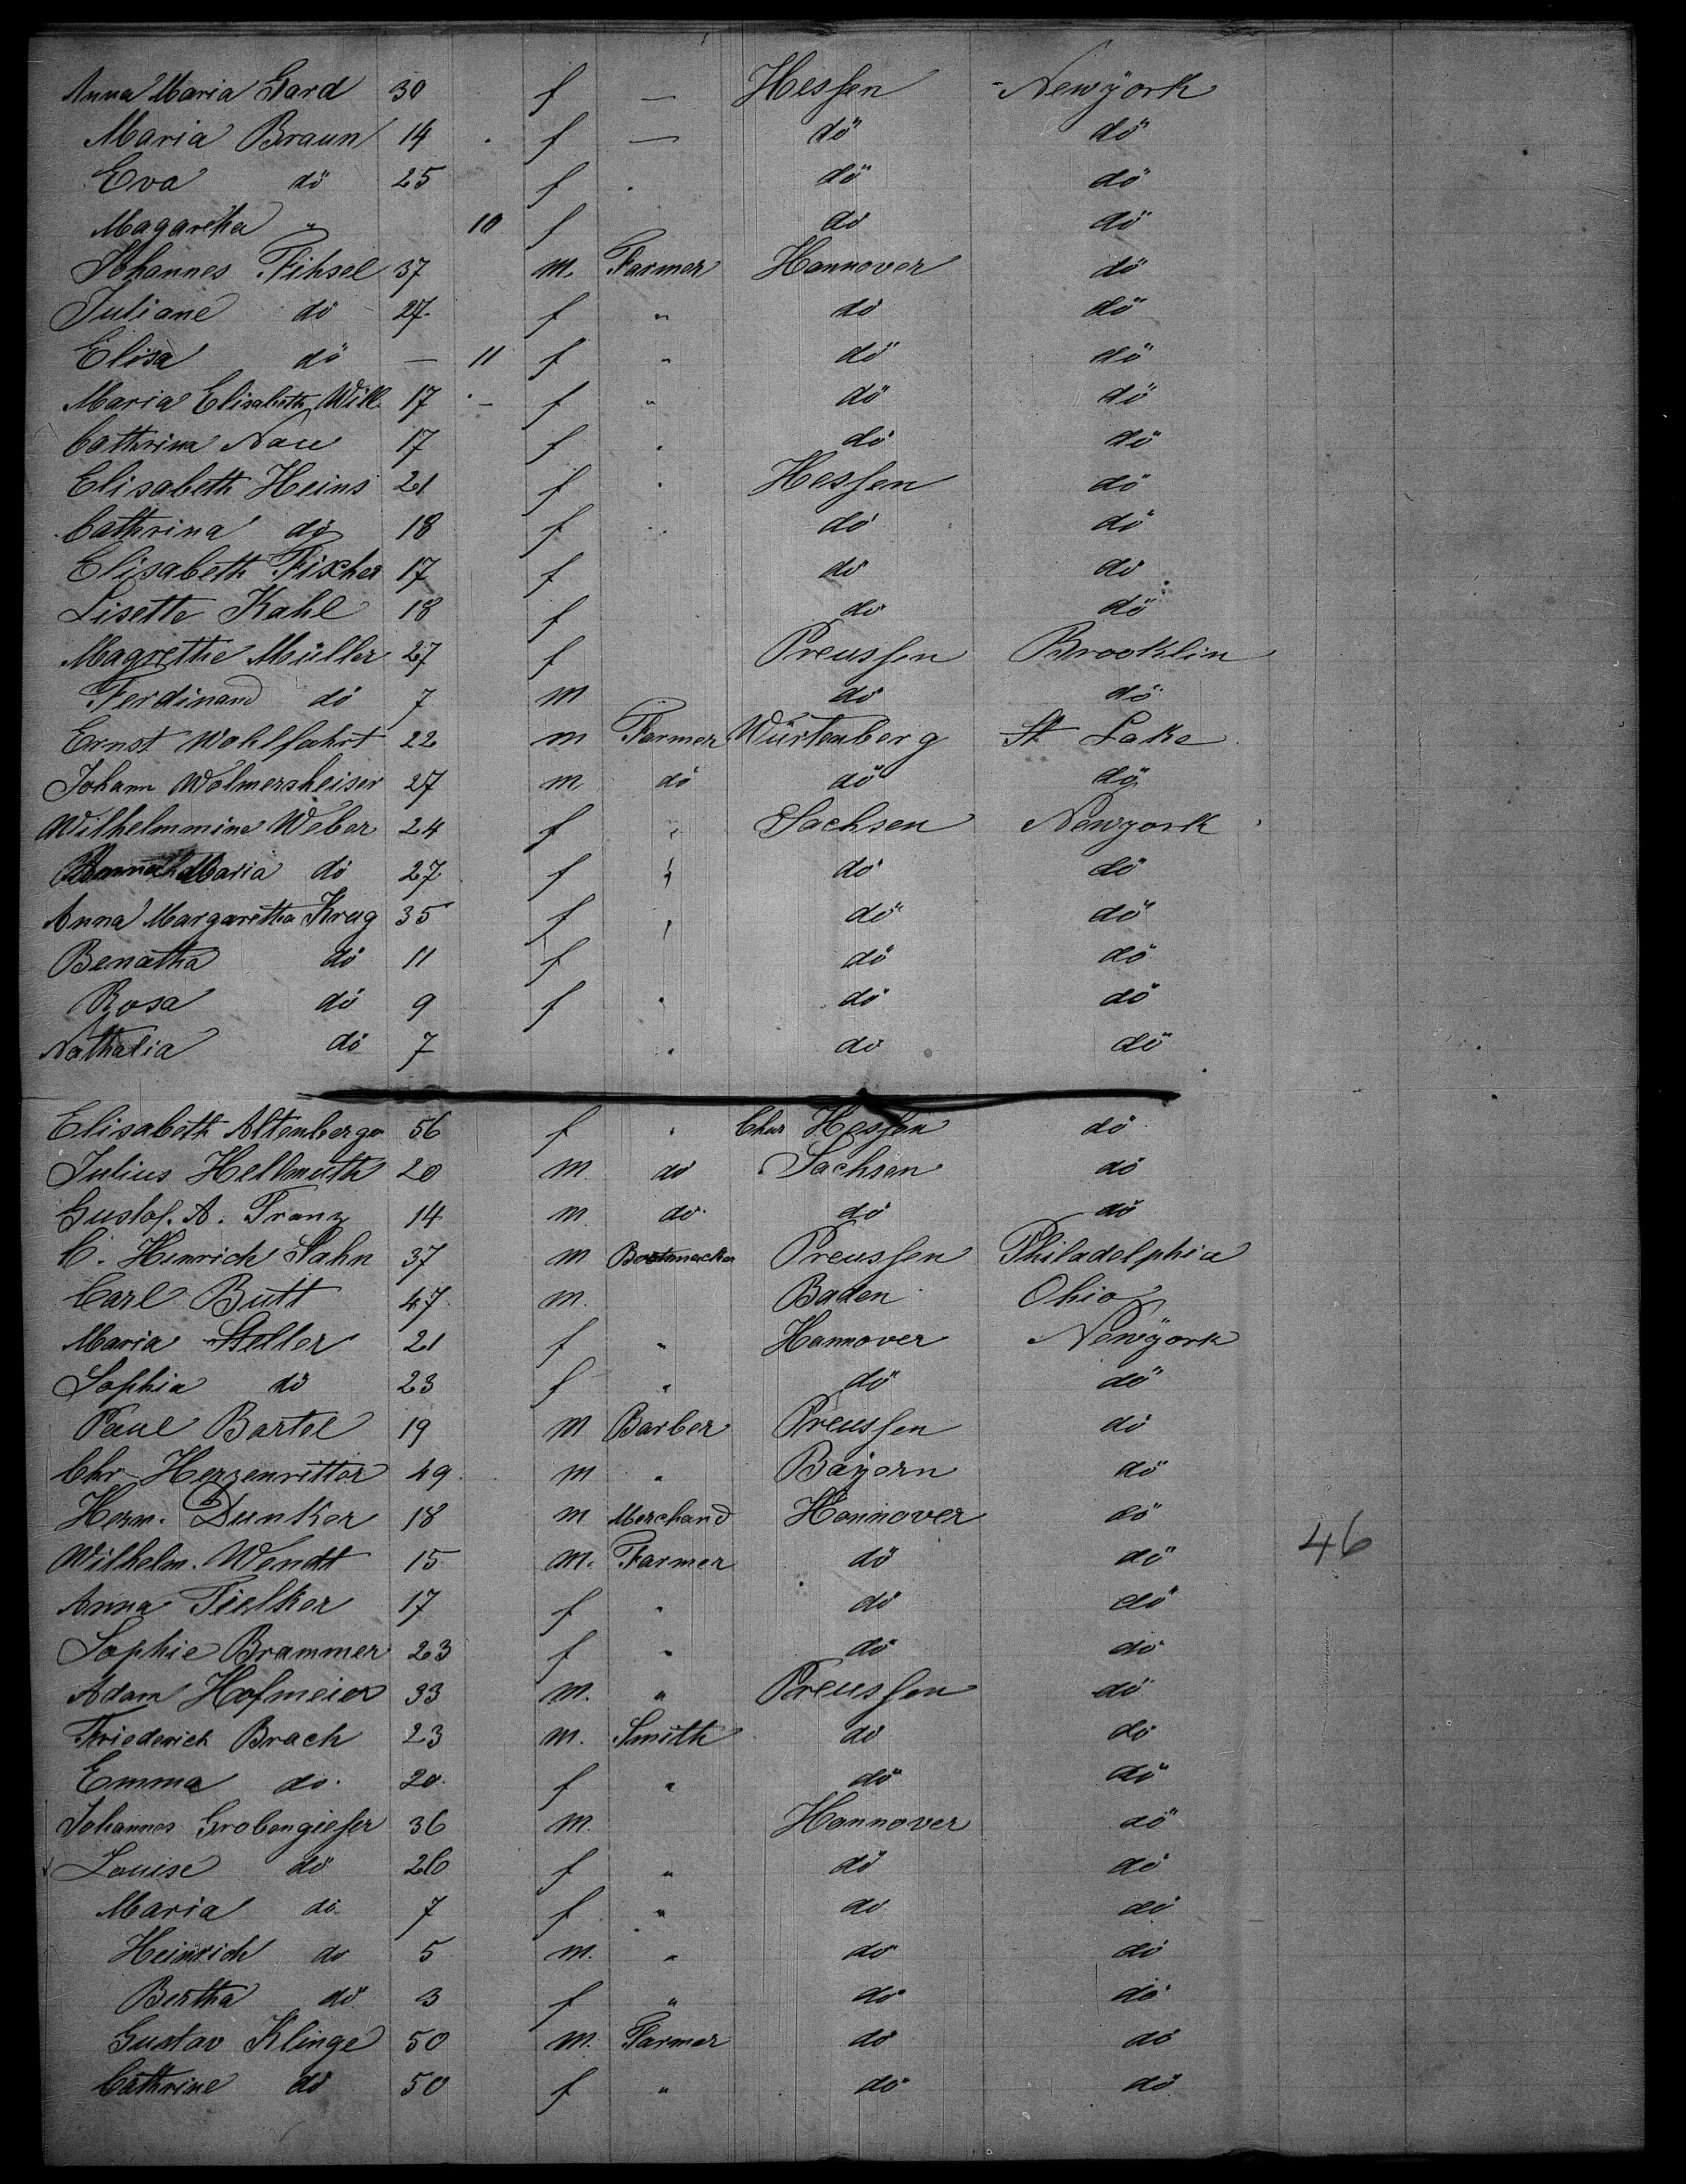 Anna Maria Gard 30 f — Hessen - Newÿork
Maria Braun 14 f — dö dö
Eva dö 25 f dö dö
Magaretha " 10 f do dö
Johannes Fihsel 37 m. Farmer Hannover dö
Juliane do 27 f " do dö
Elisa dö — 11 f " dö dö
Maria Elisabeth Will 17 — f " dö dö
Cathrina Nau 17 f dö dö
Elisabeth Heins 21 f Hessen dö
Cathrina do 18 f do dö
Elisabeth Fischer 17 f do do
Lisette Kahl 18 f do dö
Magrethe Müller 27 f Preussen Brooklin
Ferdinand do 7 m do dö
Ernst Wohlfahrt 22 m Farmer Würtenberg St Lake
Johann Wolmersheiser 27 m do dö dö
Wilhelmmine Weber 24 f " Sachsen Newyork
Maria do 27 f do dö
Anna Margaretha Krug 35 f dö dö
Benatha do 11 f dö do
Rosa do 9 f do dö
Nathalia do 7 do dö
Elisabeth Altenberger 56 f Chur Hessen dö
Julius Hellmuth 20 m do Sachsen dö
Gustof. A. Franz 14 m do dö dö
C. Hinrich Hahn 37 m Bootmacker Preussen Philadelphia
Carl Butt 47 m. Baden Ohio
Maria Steller 21 f " Hannover Newÿork
Sophia do 23 f " dö dö
Paul Bartel 19 m Barber Preussen dö
Chr Herzenritter 49 m " Bayern dö
Herm. Dunker 18 m Merchand Hannover dö
Wilhelm. Wendt 15 m. Farmer dö dö 46
Anna Tielker 17 f " do dö
Sophie Brammer 23 f " do do
Adam Hofmeier 33 m. " Preussen dö
Friederich Brach 23 m. Smith do do
Emma do. 20 f " do do
Johannes Grobengieser 36 m. Hannover dö
Louise do 26 f " dö do
Maria do 7 f " do do
Heinrich do 5 m. " do do
Bertha do 3 f " do do
Gustav Klinge 50 m. Farmer do do
Cathrine do 50 f " do do